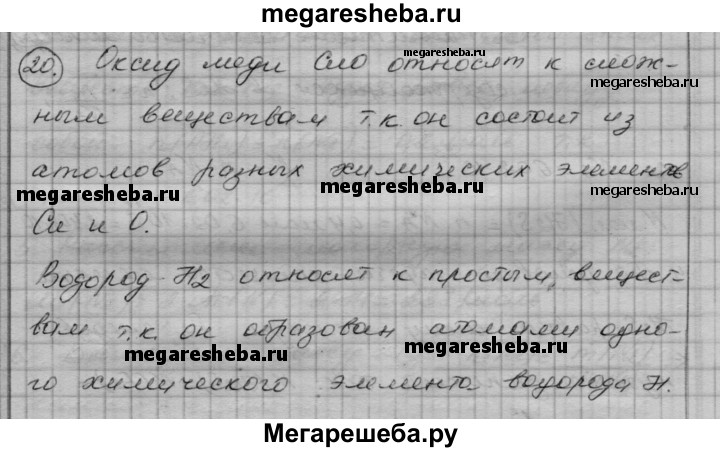 megaresheba.ru
20. Оксид меди CuO относят к слож-
megaresheba.ru
megaresheba.ru
ным веществам т.к. он состоит из
атомов разных химических элементов
megaresheba.ru megaresheba.ru megaresheba.ru
Cu и O.
Водород H2 относят к простым вещест-
вам т.к. он образован атомами одно-
megaresheba.ru megaresheba.ru
го химического элемента водорода H.
Мегарешеба.ру